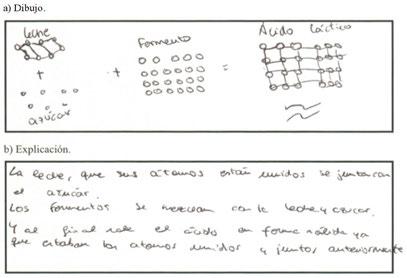 a) Dibujo.
Leche Fermento Ácido láctico
+ + =
azúcar
b) Explicación.
La leche, que sus átomos están unidos se juntan con
el azúcar.
Los fermentos se mezclan con la leche y azúcar.
Y al final sale el ácido en forma sólida ya
que estaban los átomos unidos y juntos anteriormente